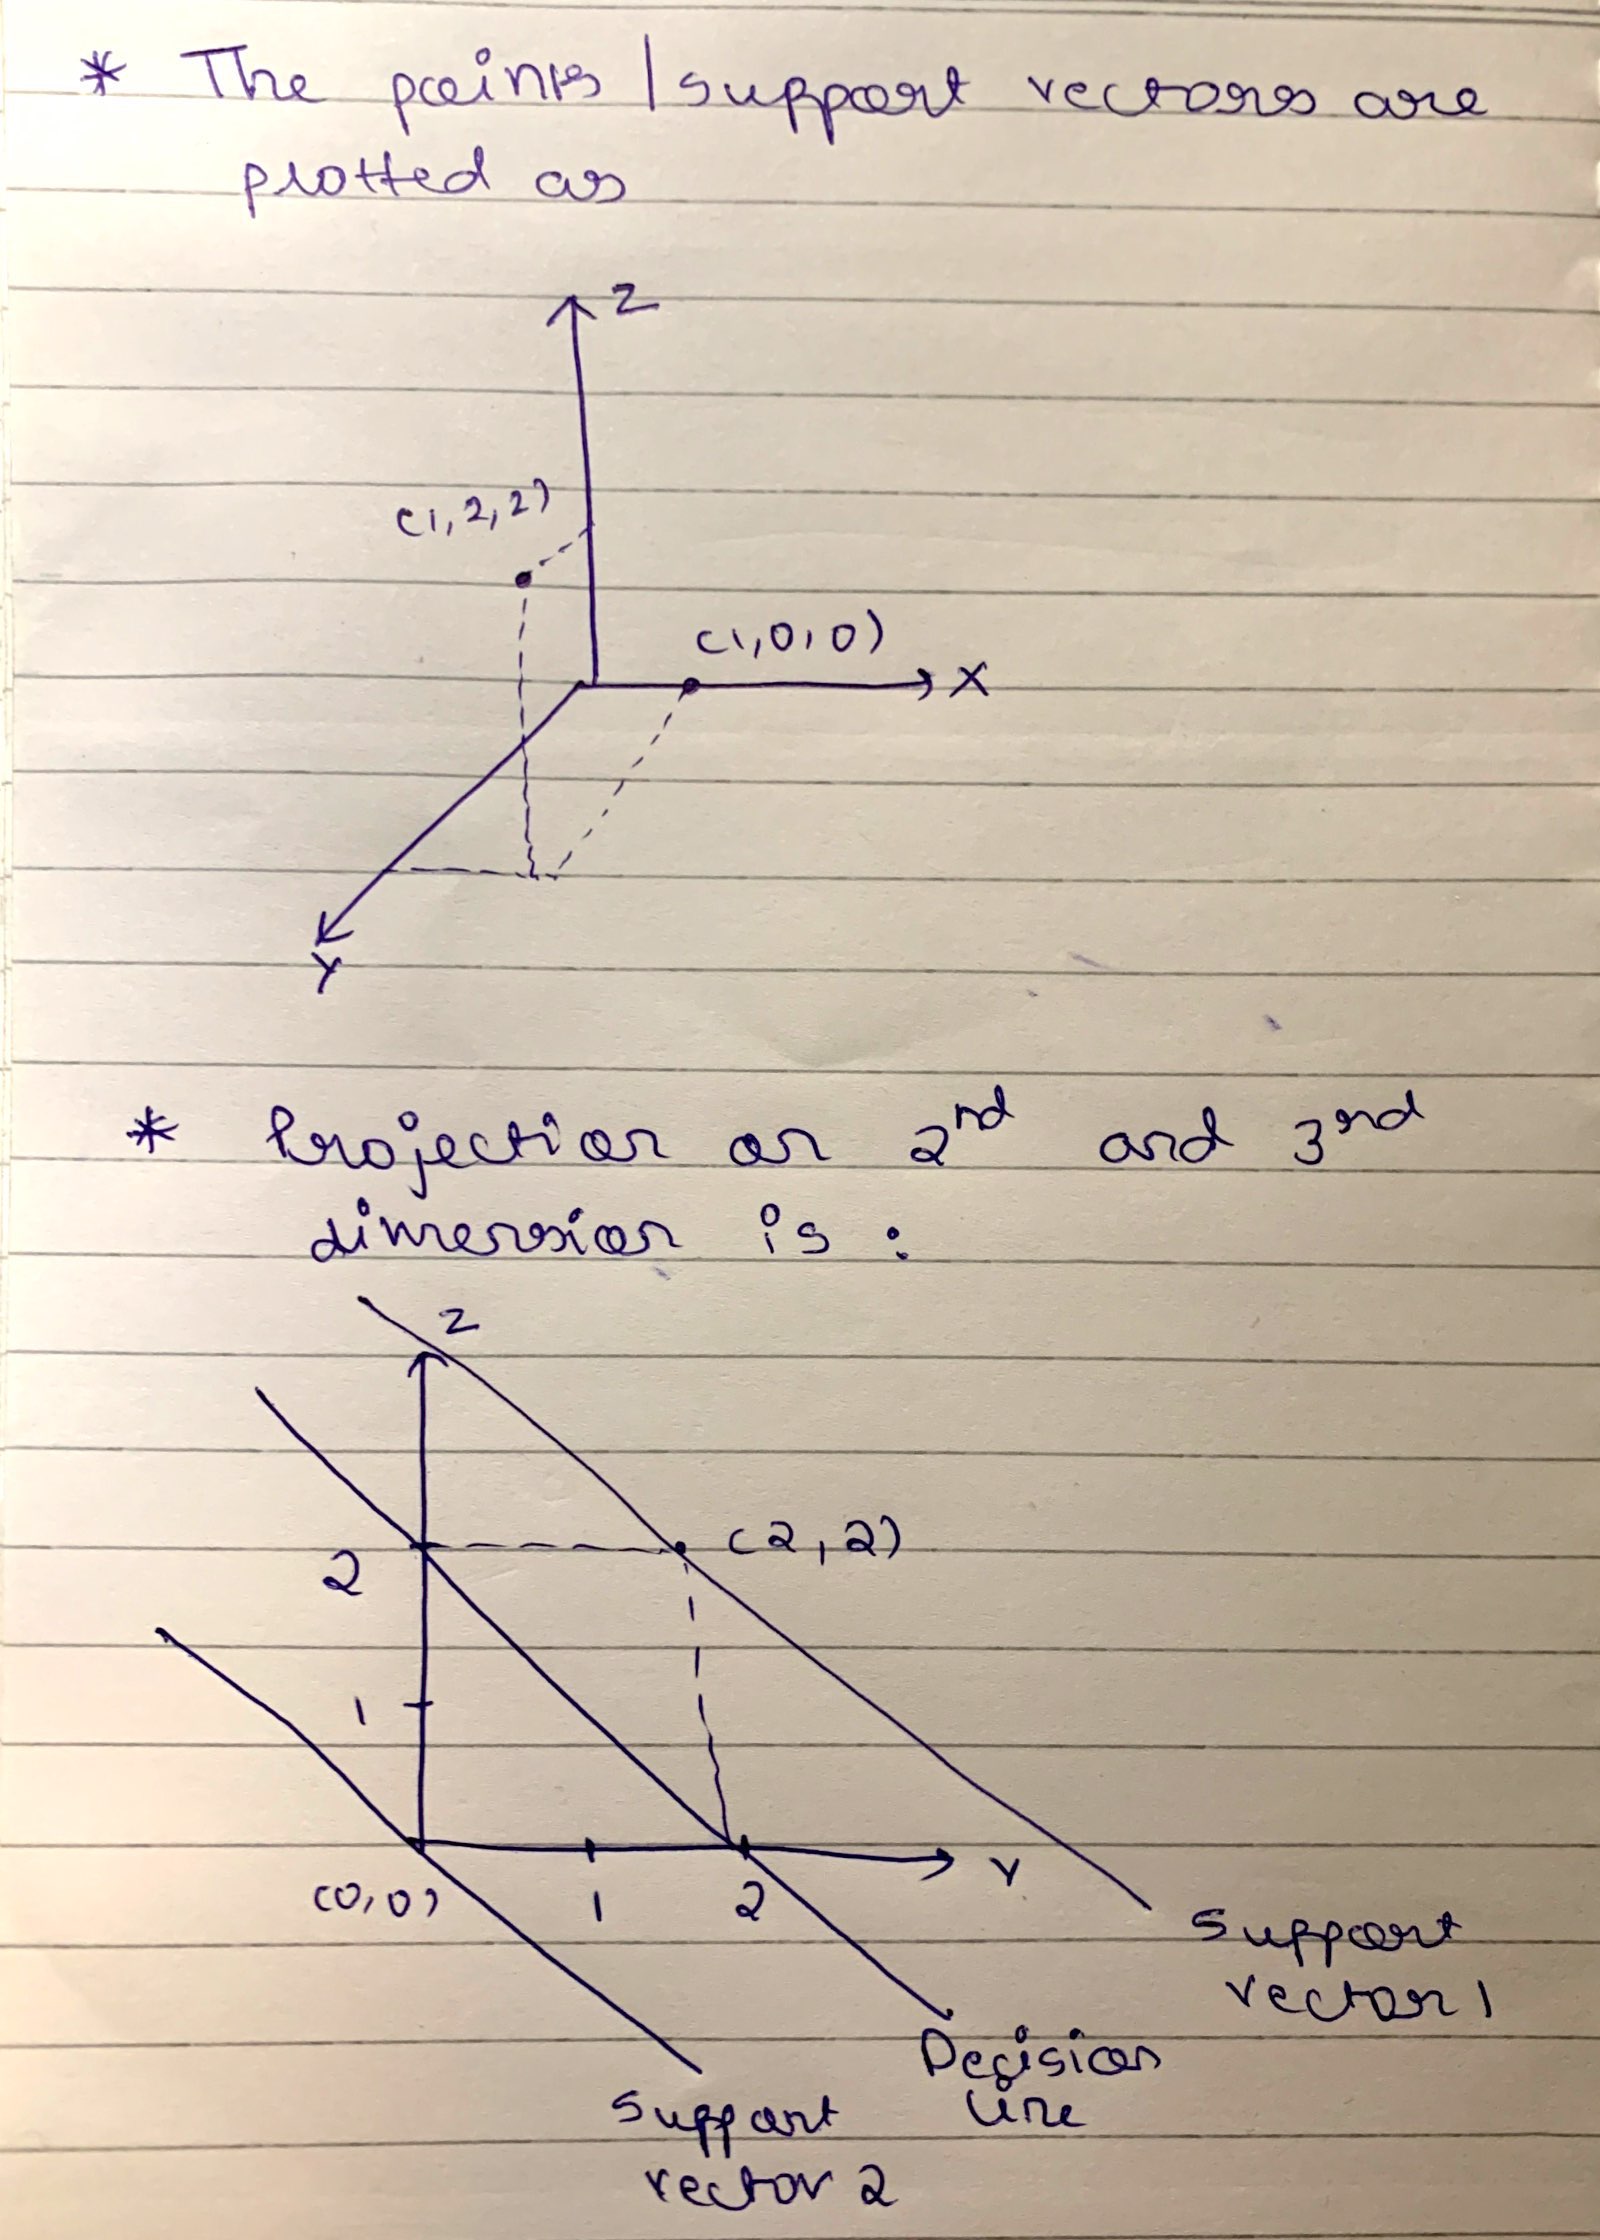 * The points / support vectors are
plotted as
Z
(1, 2, 2)
(1, 0, 0)
X
Y
* Projection on 2nd and 3rd
dimension is :
Z
2
(2, 2)
1
(0, 0)
1
2
Y
Support
vector 1
Decision
line
Support
vector 2